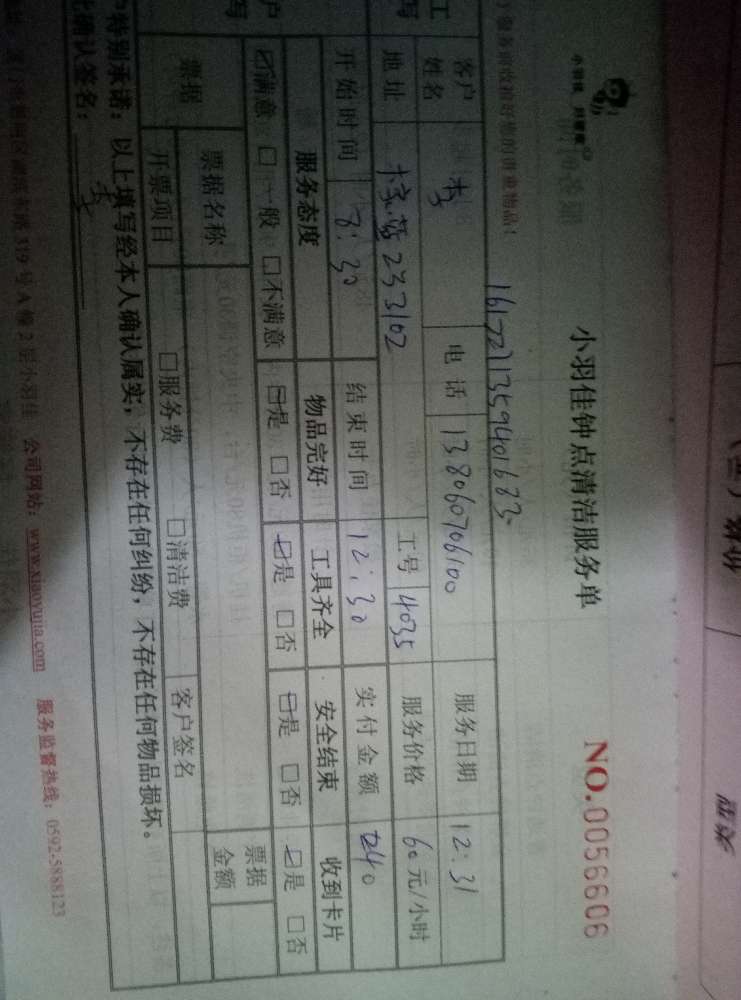 小羽佳钟点清洁服务单
NO.0056606
服务前收拾好您的贵重物品！
16172713594016835
客户姓名 李 电话 138060706100 服务日期 12:31
地址 233102 工号 4035 服务价格 60元/小时
开始时间 8:30 结束时间 12:30 实付金额 240
服务态度 物品完好 工具齐全 安全结束 收到卡片
☑满意 □一般 □不满意 ☑是 □否 ☑是 □否 ☑是 □否 ☑是 □否
票据 票据名称 票据金额
开票项目 □服务费 □清洁费 客户签名
特别承诺：以上填写经本人确认属实，不存在任何纠纷，不存在任何物品损坏。
此确认签名：李
319号A幢2层小羽佳 公司网站：www.xiaoyujia.com 服务监督热线：0592-5888123